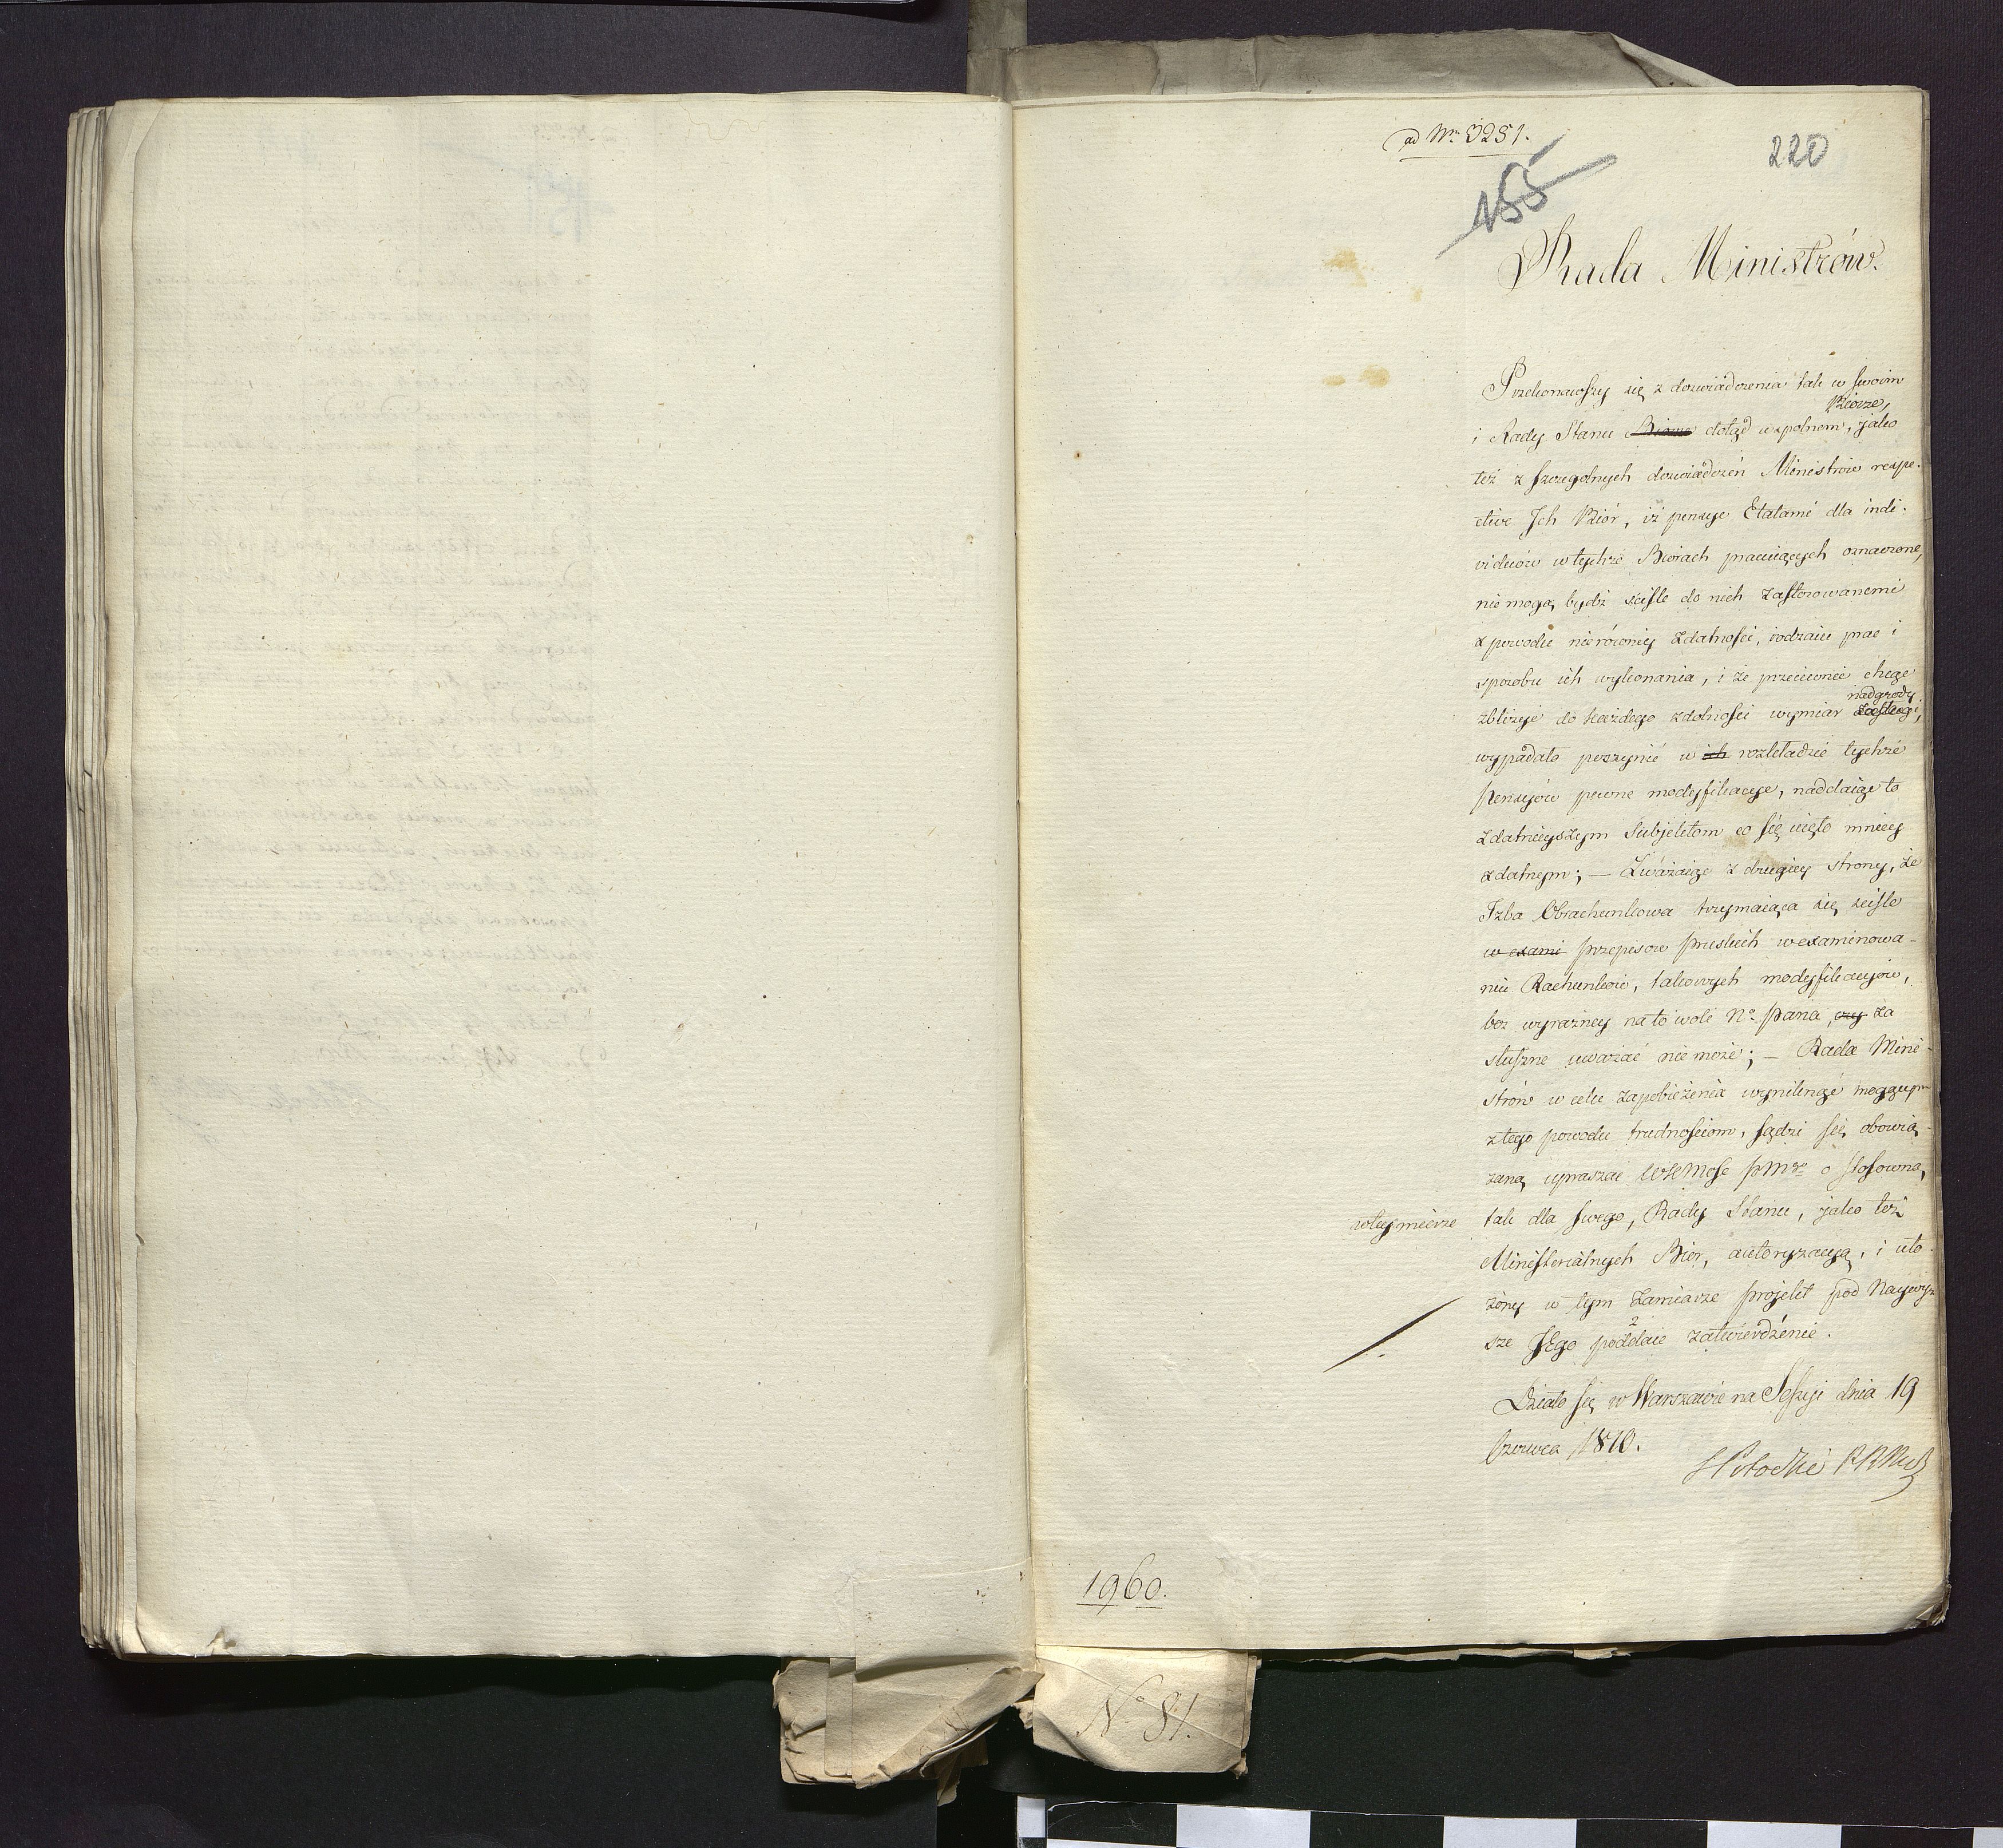 ad Nr 3251.
155
220
Rada Ministrów.
Przekonawszy się z doświadczenia tak w swoim
Biórze,
i Rady Stanu Biorze dotąd wspolnem, jako
też z szczegolnych doświadczeń Ministrów respe-
ctive Ich Biór, iż pensye Etatami dla indi-
viduów w tychże Biórach pracuiących oznaczone,
nie mogą bydź ściśle do nich zastosowanemi
z powodu nierówney zdatności, rodzaiu prac i
sposobu ich wykonania, i że przeciwnie chcąc
nadgrody
zbliżyć do każdego zdolności wymiar zasługi,
wypadało poczynić w ich rozkładzie tychże
Pensyów pewne modyfikacye, naddaiąc to
zdatnieyszym Subjektom co się uięło mniey
zdatnym; — Zważaiąc z drugiey strony, że
Izba Obrachunkowa trzymaiąca się ściśle
w exami przepisow pruskich w examinowa-
niu Rachunków, takowych modyfikacyów,
bez wyraźney na to woli No Pana, czy za
słuszne uważać nie może; — Rada Mini-
strów w celu zapobieżenia wyniknąć mogącym
z tego powodu trudnościom, sądzi się obowią-
zaną upraszać WKMość PMgo o stosowną
w tey mierze tak dla swego, Rady Stanu, jako też
Ministerialnych Biór, autoryzacyą, i uło-
żony w tym zamiarze projekt pod Naywyż-
sze JEgo poddaie zatwierdzenie.
Działo się w Warszawie na Sessyi dnia 19
Czerwca 1810.
SPotocki PRM
1960.
No 81.